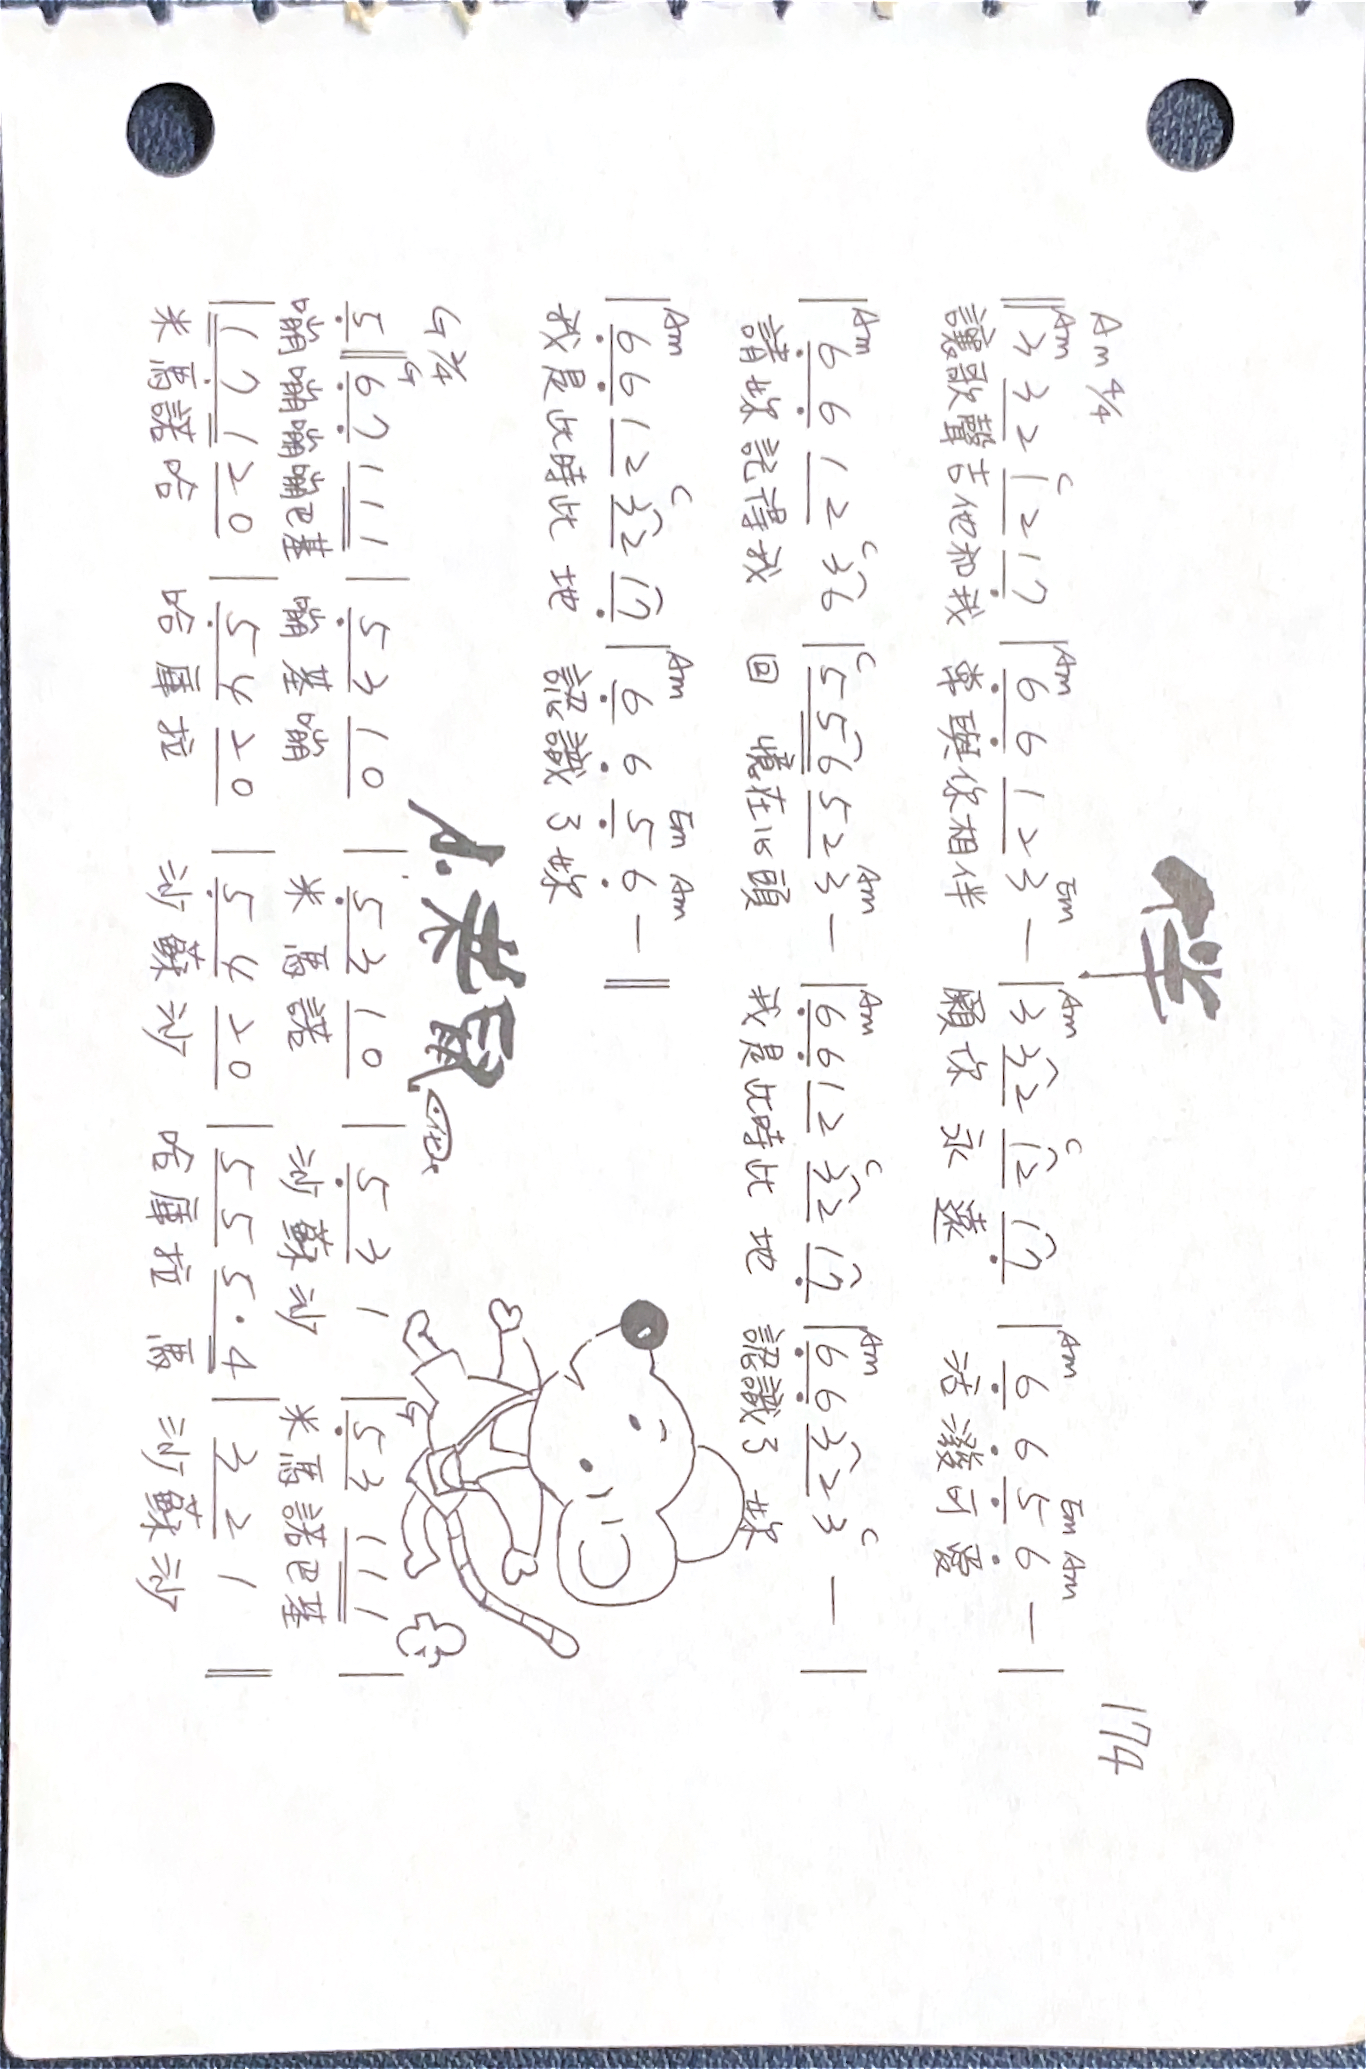 伴
174
Am 4/4
Am C Am Em Am C Am Em Am
‖ 3 3 2 1 2 1 7 | 6 6 1 2 3 — | 3 3 2 1 2 1 7 | 6 6 5 6 — |
讓歌聲吉他和我 常與你相伴 願你永遠 活潑可愛
Am C C Am Am C Am C
| 6 6 1 2 3 6 | 5 5 6 5 2 3 — | 6 6 1 2 3 2 1 7 | 6 6 3 2 3 — |
請妳記得我 回憶在心頭 我是此時此地 認識了妳
Am C Am Em Am
| 6 6 1 2 3 2 1 7 | 6 6 5 6 — ‖
我是此時此地 認識了妳
小老鼠
G 2/4
G G
5 ‖ 6 7 1 1 1 | 5 3 1 0 | 5 3 1 0 | 5 3 1 | 5 3 1 1 1 |
嘣嘣嘣嘣巴基 嘣基嘣 米馬諾 沙蘇沙 米馬諾巴基
| 1 7 1 2 0 | 5 4 2 0 | 5 4 2 0 | 5 5 5 · 4 | 3 2 1 ‖
米馬諾哈 哈庫拉 沙蘇沙 哈庫拉馬 沙蘇沙